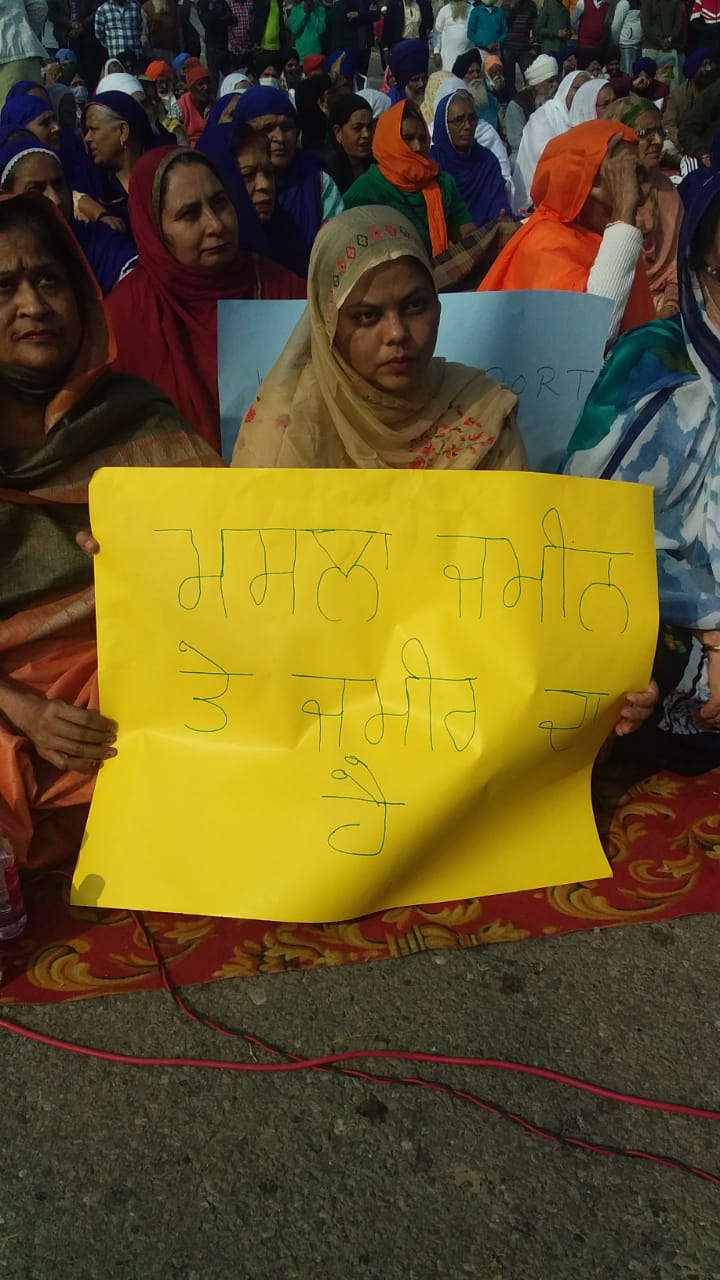 ਮਸਲ ਜਮੀਨ
ਤੇ ਜਮੀਰ ਦਾ
ਹੈ